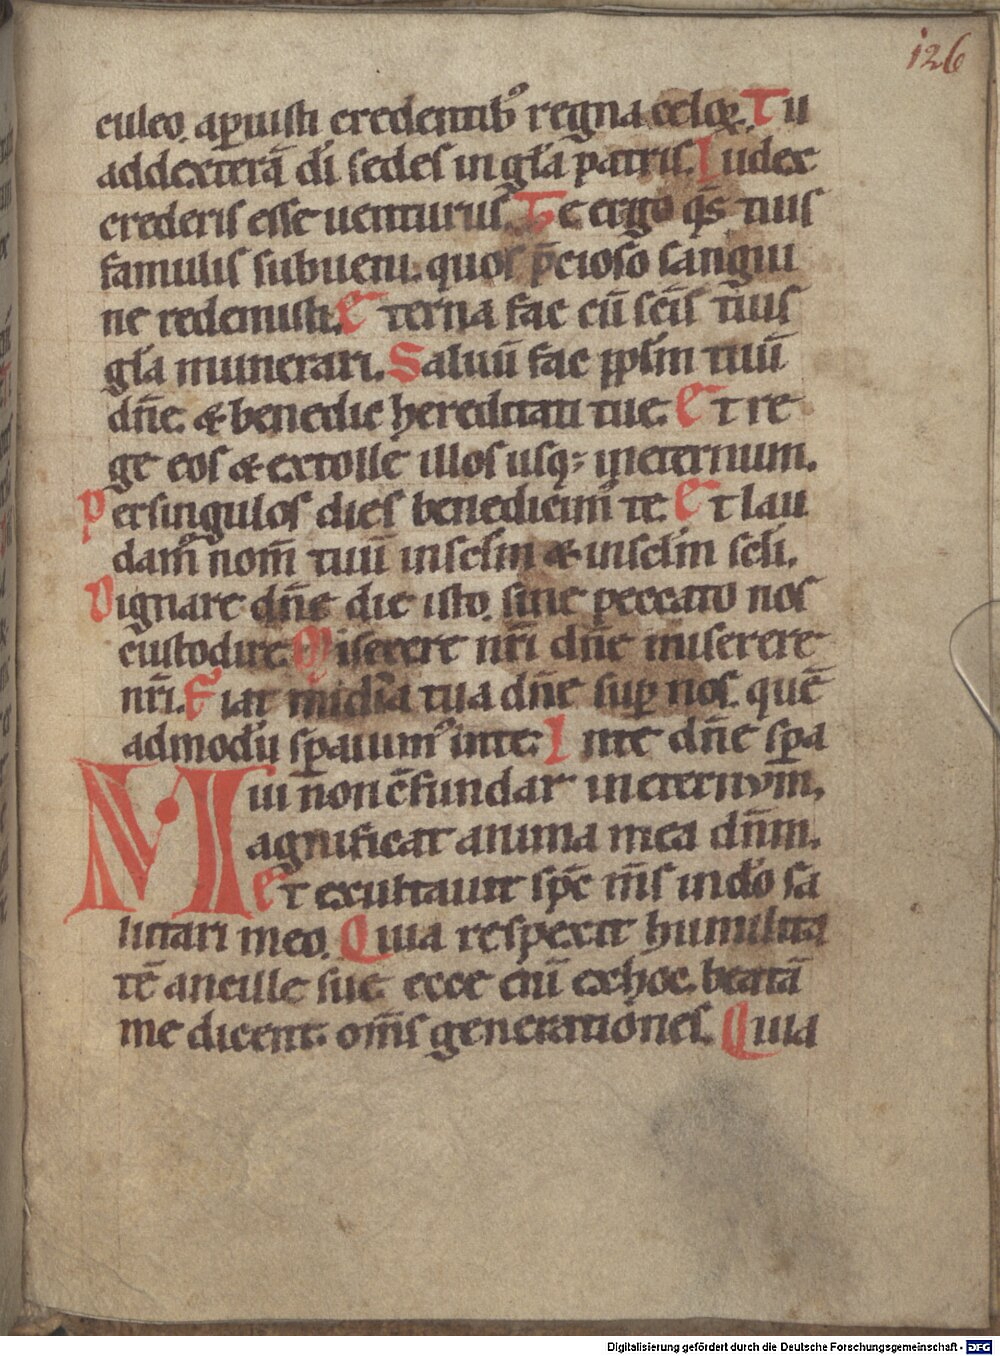 126
culeo. aꝑuisti credentib᷒ regna celoꝝ. Tu
addexterā dī sedes in gl̄a patris. Iudex
crederis esse uenturus. Te ergo q̄s tuis
famulis subueni. quos p̄cioso sangui
ne redemisti. Eterna fac cū sc̄is tuis
gl̄a munerari. Saluū fac pplm̄ tuū
dn̄e. & benedic hereditati tue. Et re
ge eos & extolle illos usq; ineternum.
Persingulos dies benedicim᷒ te. Et lau
dam᷒ nom̄ tuū insclm̄ & insclm̄ scli.
Dignare dn̄e die isto. sine peccato nos
custodire. Miserere nr̄i dn̄e miserere
nr̄i. Fiat mid̄ia tua dn̄e suꝑ nos. quē
admodū sp̄auim᷒ inte. Inte dn̄e sp̄a
ui non c̄fundar ineternvm̄.
Magnificat anima mea dn̄m.
Et exultauit sp̄c m̄s indō sa
lutari meo. Quia respexit humilita
tē ancille sue ecce eni᷒ exhoc. beatā
me dicent. om̄s generationes. Quia
Digitalisierung gefördert durch die Deutsche Forschungsgemeinschaft - DFG